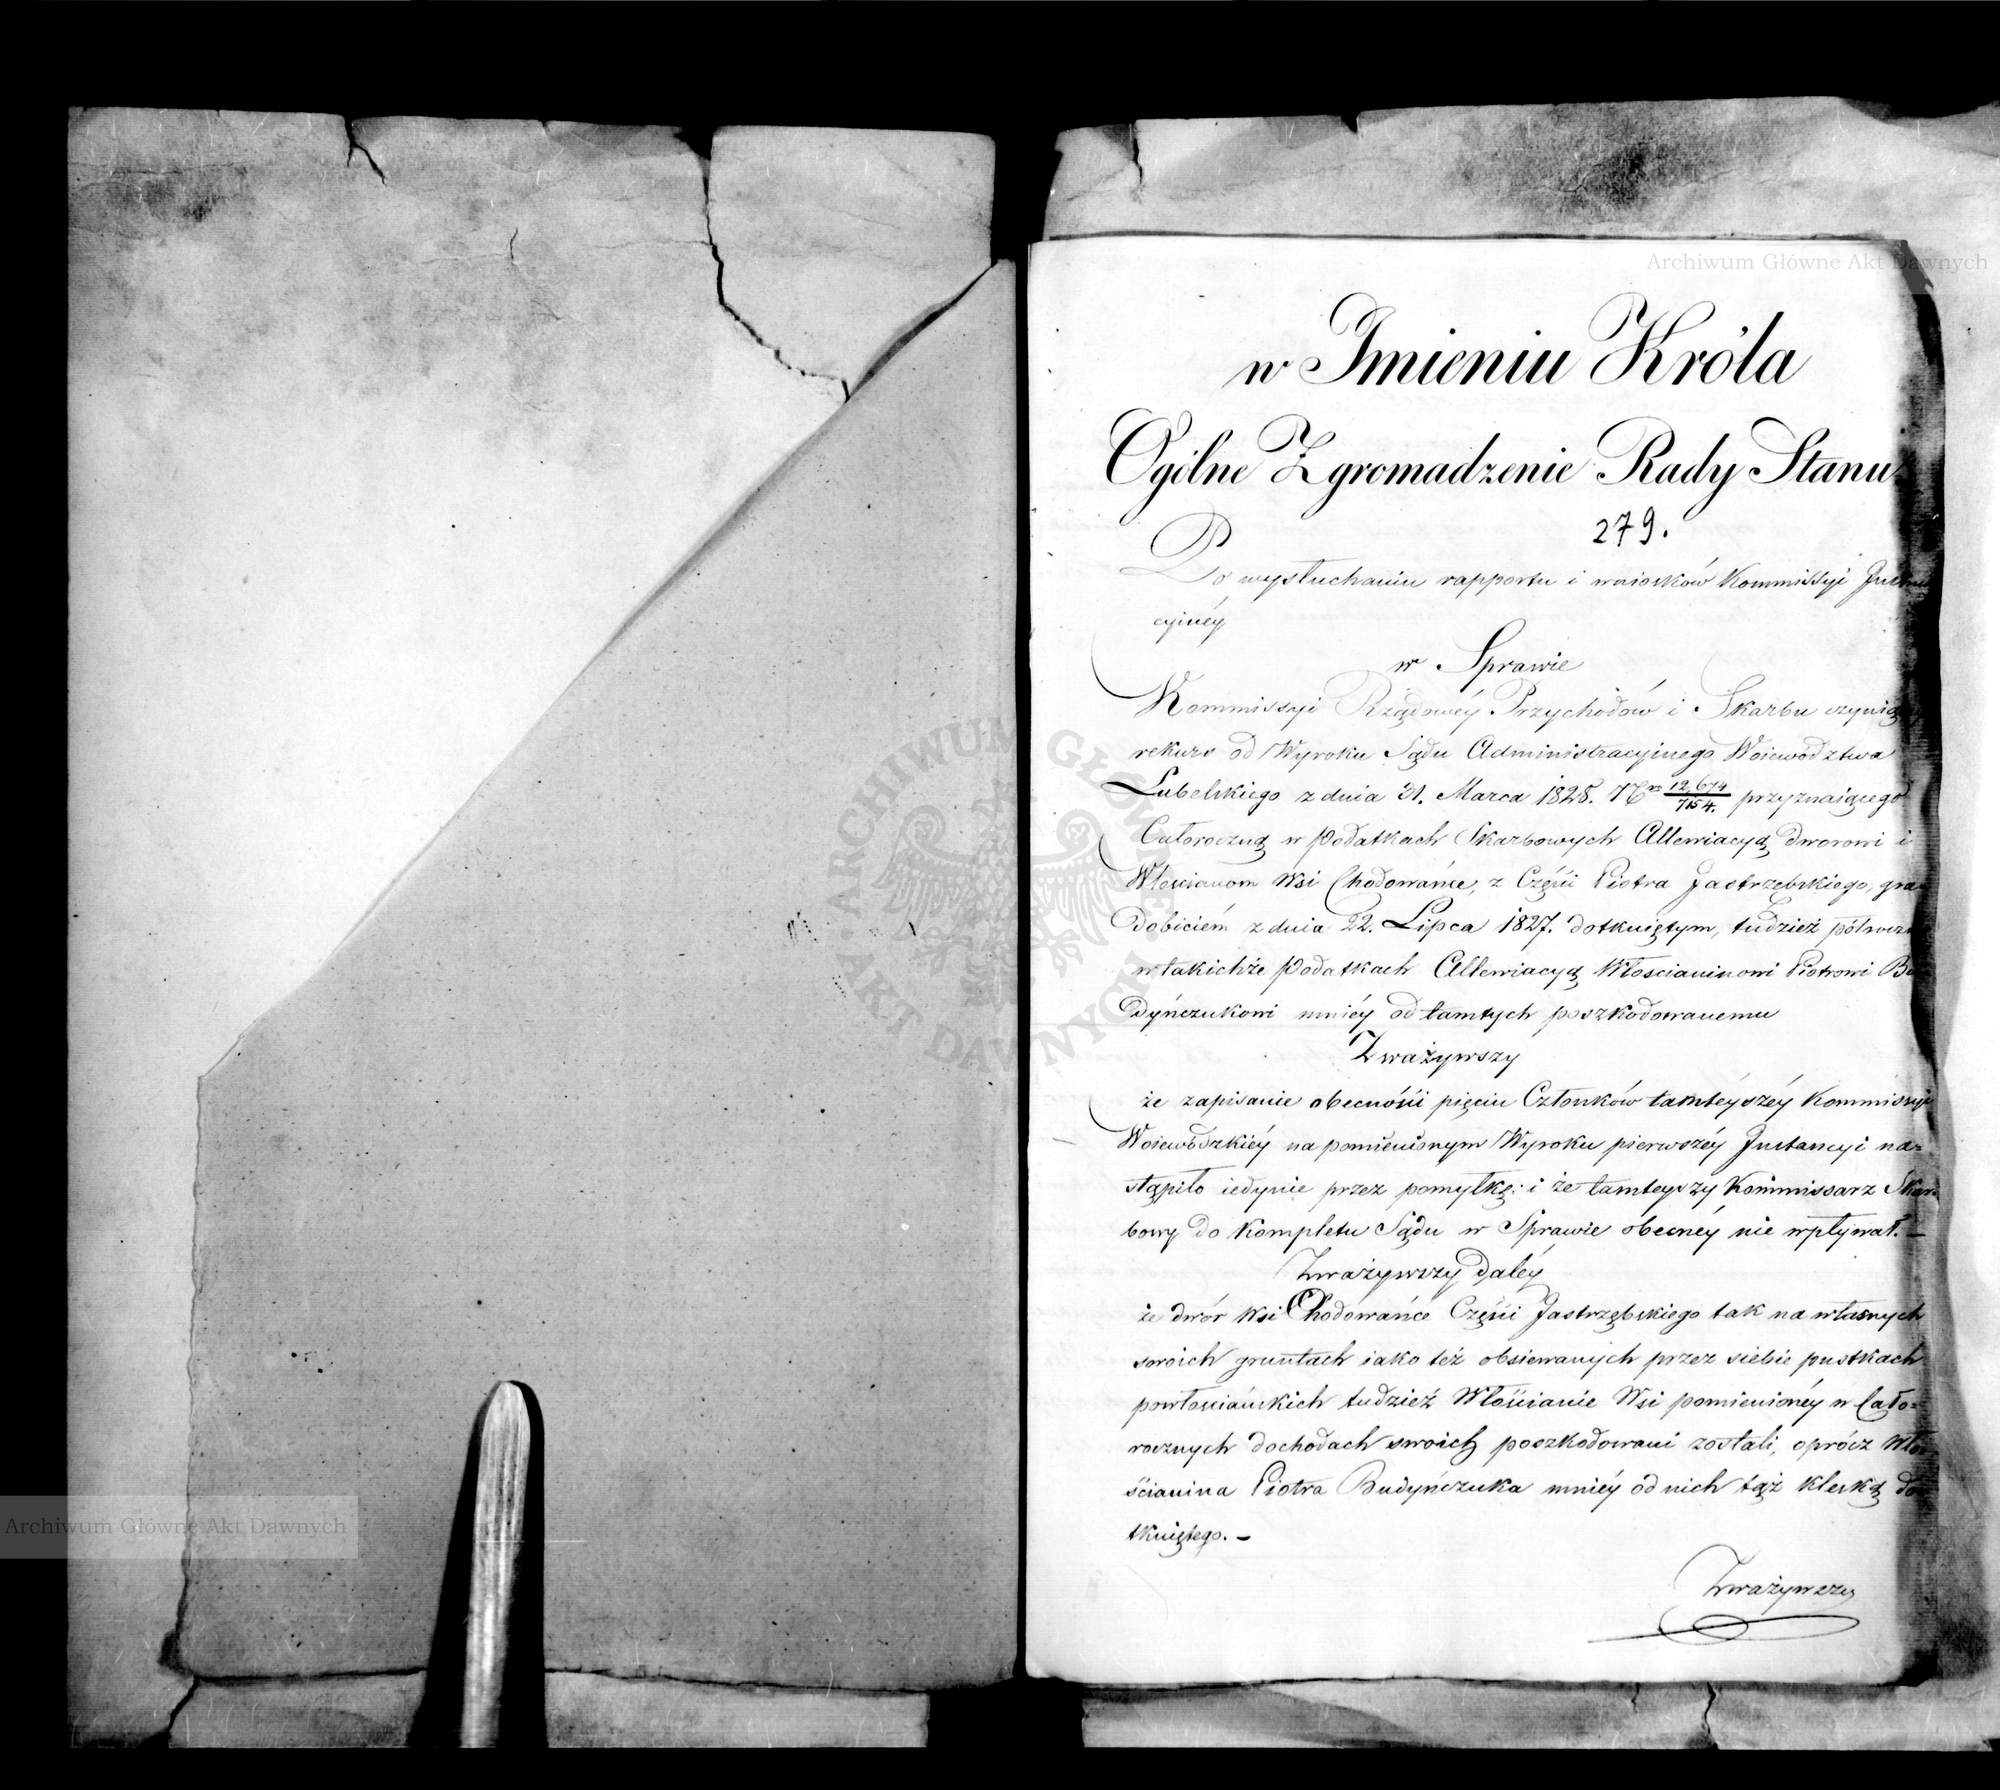 Archiwum Główne Akt Dawnych
w Imieniu Króla
Ogólne Zgromadzenie Rady Stanu
279.
Po wysłuchaniu rapportu i wniosków Kommissyi
cyinéy
w Sprawie
Kommissyi Rządowéy Przychodów i Skarbu
rekurs od Wyroku Sądu Administracyjnego Woiewództwa
Lubelskiego z dnia 31. Marca 1828. 12,674/7154. przyznaiącego
Całoroczną w Podatkach Skarbowych Allewiacyą dworowi i
Włościanom Wsi Chodowańce, z Części Piotra Jastrzębskiego,
dobiciem z dnia 22. Lipca 1827. dotkniętym, tudzież
w takichże Podatkach Allewiacyą Włościaninowi Piotrowi Bu
dyńczukowi mniéy od tamtych poszkodowanemu
Zważywszy
że zapisanie obecności pięciu Członków tamtéyszéy Kommissyi
Woiewódzkiéy na pomienionym Wyroku pierwszéy Instancyi na=
stąpiło iedynie przez pomyłkę: i że tamteyszy Kommissarz Skar
bowy do Kompletu Sądu w Sprawie obecnéy nie wpływał. —
Zważywszy daléy
że dwór Wsi Chodowańce Części Jastrzębskiego tak na własnych
swoich gruntach iako też obsiewanych przez siebie pustkach
powłościańskich tudzież Włościanie Wsi pomienionéy w Cało=
rocznych dochodach swoich poszkodowani zostali, oprócz Wło
ścianina Piotra Budyńczuka mniéy od nich tąż klęską do
tkniętego. —
Zważywszy
ARCHIWUM GŁÓWNE AKT DAWNYCH
Archiwum Główne Akt Dawnych